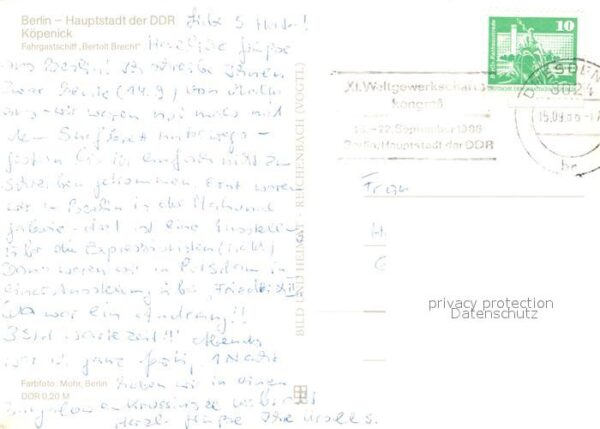 Berlin – Hauptstadt der DDR
Köpenick
Fahrgastschiff „Bertolt Brecht"
Herzliche Grüße
aus Berlin! Ich schreibe Ihnen
zwar heute (14.9) von
aus - wir waren mal mit
dem Surfbrett unterwegs -
gestern bin ich einfach nicht zum
Schreiben gekommen. Erst waren
wir in Berlin in der National
galerie - dort ist eine Ausstellung
über die Expressionisten
Dann waren wir in Potsdam in
einer Ausstellung über „Friedrich II"
Da war ein Andrang!!
3 Std Wartezeit!!! Abends
war ich ganz fertig, 1 Nacht
haben wir in einem
Bungalow am Krossinsee
Herzl. Grüße Ihre
Farbfoto: Mohr, Berlin
DDR 0,20 M
BILD UND HEIMAT · REICHENBACH (VOGTL)
10
XI. Weltgewerkschafts-
kongreß
- 22. September 1986
Berlin, Hauptstadt der DDR
DRESDEN
8024
15.09.86
Frau
privacy protection
Datenschutz